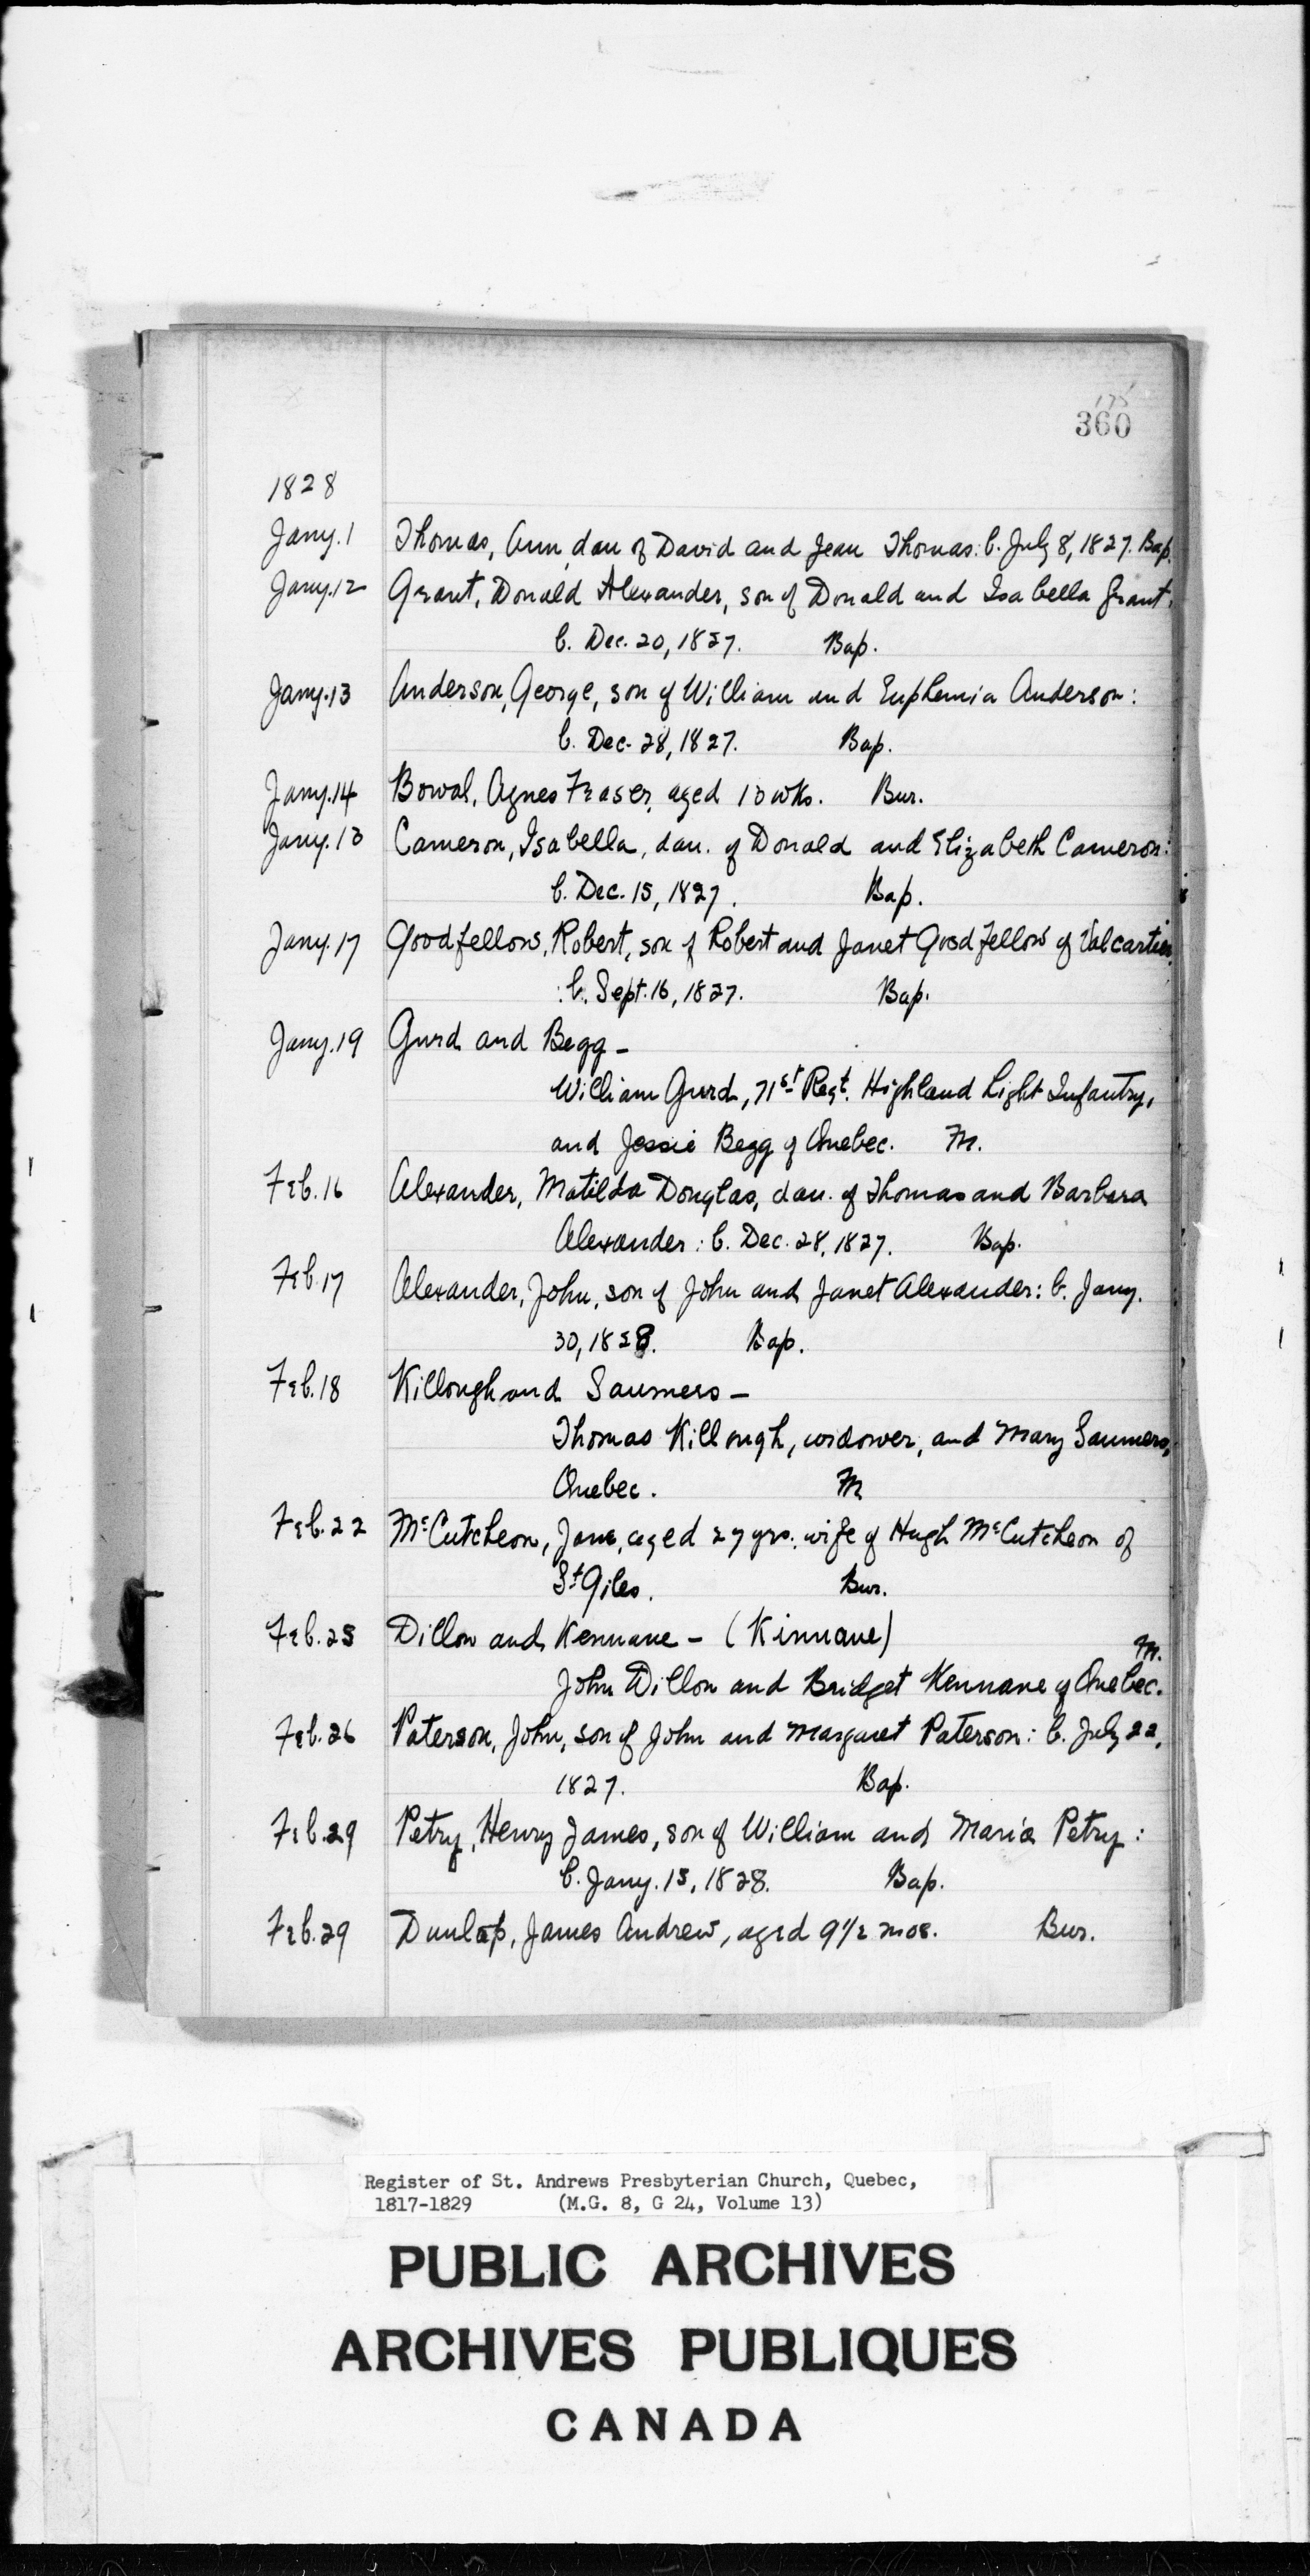 175
360
1828
Jany. 1 Thomas, Ann, dau of David and Jean Thomas: b. July 8, 1827. Bap.
Jany. 12 Grant, Donald Alexander, son of Donald and Isabella Grant.
b. Dec. 20, 1827. Bap.
Jany. 13 Anderson, George, son of William and Euphemia Anderson:
b. Dec. 28, 1827. Bap.
Jany. 14 Bowal, Agnes Fraser, aged 10 wks. Bur.
Jany. 13 Cameron, Isabella, dau. of Donald and Elizabeth Cameron:
b. Dec. 15, 1827. Bap.
Jany. 17 Goodfellow, Robert, son of Robert and Janet Goodfellow of Valcartier
: b. Sept. 16, 1827. Bap.
Jany. 19 Gurd and Begg –
William Gurd, 71st Regt. Highland Light Infantry,
and Jessie Begg of Quebec. M.
Feb. 16 Alexander, Matilda Douglas, dau. of Thomas and Barbara
Alexander: b. Dec. 28, 1827. Bap.
Feb. 17 Alexander, John, son of John and Janet Alexander: b. Jany.
30, 1828. Bap.
Feb. 18 Killough and Saumers –
Thomas Killough, widower, and Mary Saumers,
Quebec. M
Feb. 22 McCutcheon, Jane, aged 27 yrs. wife of Hugh McCutcheon of
St Giles. Bur.
Feb. 25 Dillon and Kennane – (Kinnane)
M.
John Dillon and Bridget Kennane of Quebec.
Feb. 26 Paterson, John, son of John and Margaret Paterson: b. July 22,
1827. Bap.
Feb. 29 Petry, Henry James, son of William and Maria Petry:
b. Jany. 15, 1828. Bap.
Feb. 29 Dunlop, James Andrew, aged 9 1/2 mos. Bur.
Register of St. Andrews Presbyterian Church, Quebec,
1817-1829 (M.G. 8, G 24, Volume 13)
PUBLIC ARCHIVES
ARCHIVES PUBLIQUES
CANADA